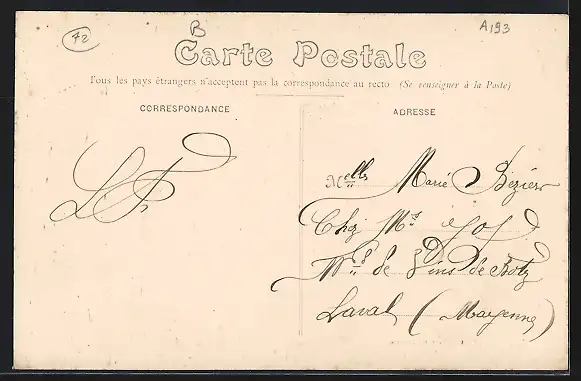 72
B
A193
Carte Postale
Tous les pays étrangers n'acceptent pas la correspondance au recto (Se renseigner à la Poste)
CORRESPONDANCE
ADRESSE
L.P.
Melles Marie Bezier
Chez Mr
Md de Vins de
Laval (Mayenne)